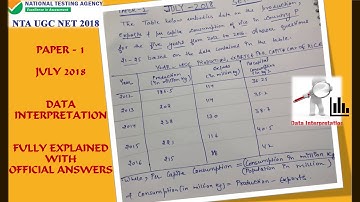 NATIONAL TESTING AGENCY
Excellence in Assessment
NTA UGC NET 2018
PAPER - 1
JULY 2018
DATA
INTERPRETATION
FULLY EXPLAINED
WITH
OFFICIAL ANSWERS
PAPER-1 JULY-2018
The Table below embodies data on the production,
Exports & per capita Consumption of rice in Country P
for the five years from 2012 to 2016. Answer question
21-25 based on the data contained in the table.
Year Production (in million kg) Exports (in million kg)
2012 186.5 114 36.25
2013 202 114
2014 238 130
2015 221
2016 215 88 42
Where, Per Capita Consumption = (Consumption in million kg)
(Population in million)
& Consumption (in million kg) = Production - Exports
Data Interpretation